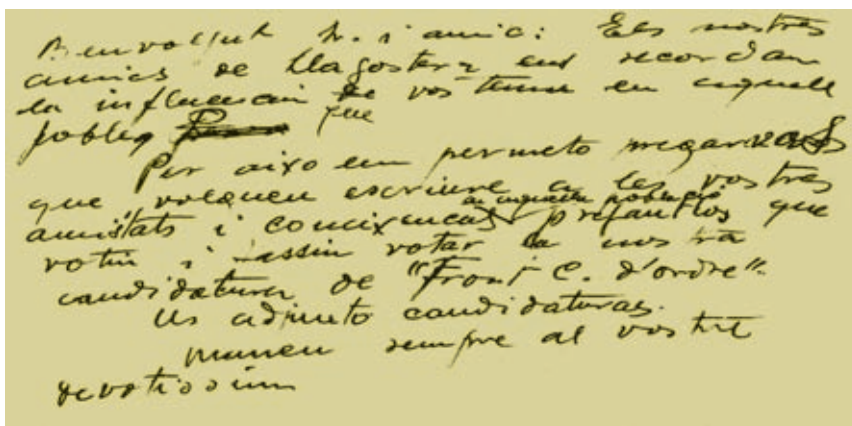 Benvolgut Sr. i amic: Els nostres
amics de Llagostera ens recordan
la influencia que vos teniu en aquell
poble,
Per aixo em permeto pregarvos
que volgueu escriure a les vostres
en aquella població
amistats i coneixences pregantlos que
votin i fassin votar la nostra
candidatura de "Front C. d'ordre".
Us adjunto candidaturas.
Maneu sempre al vostre
devotissim